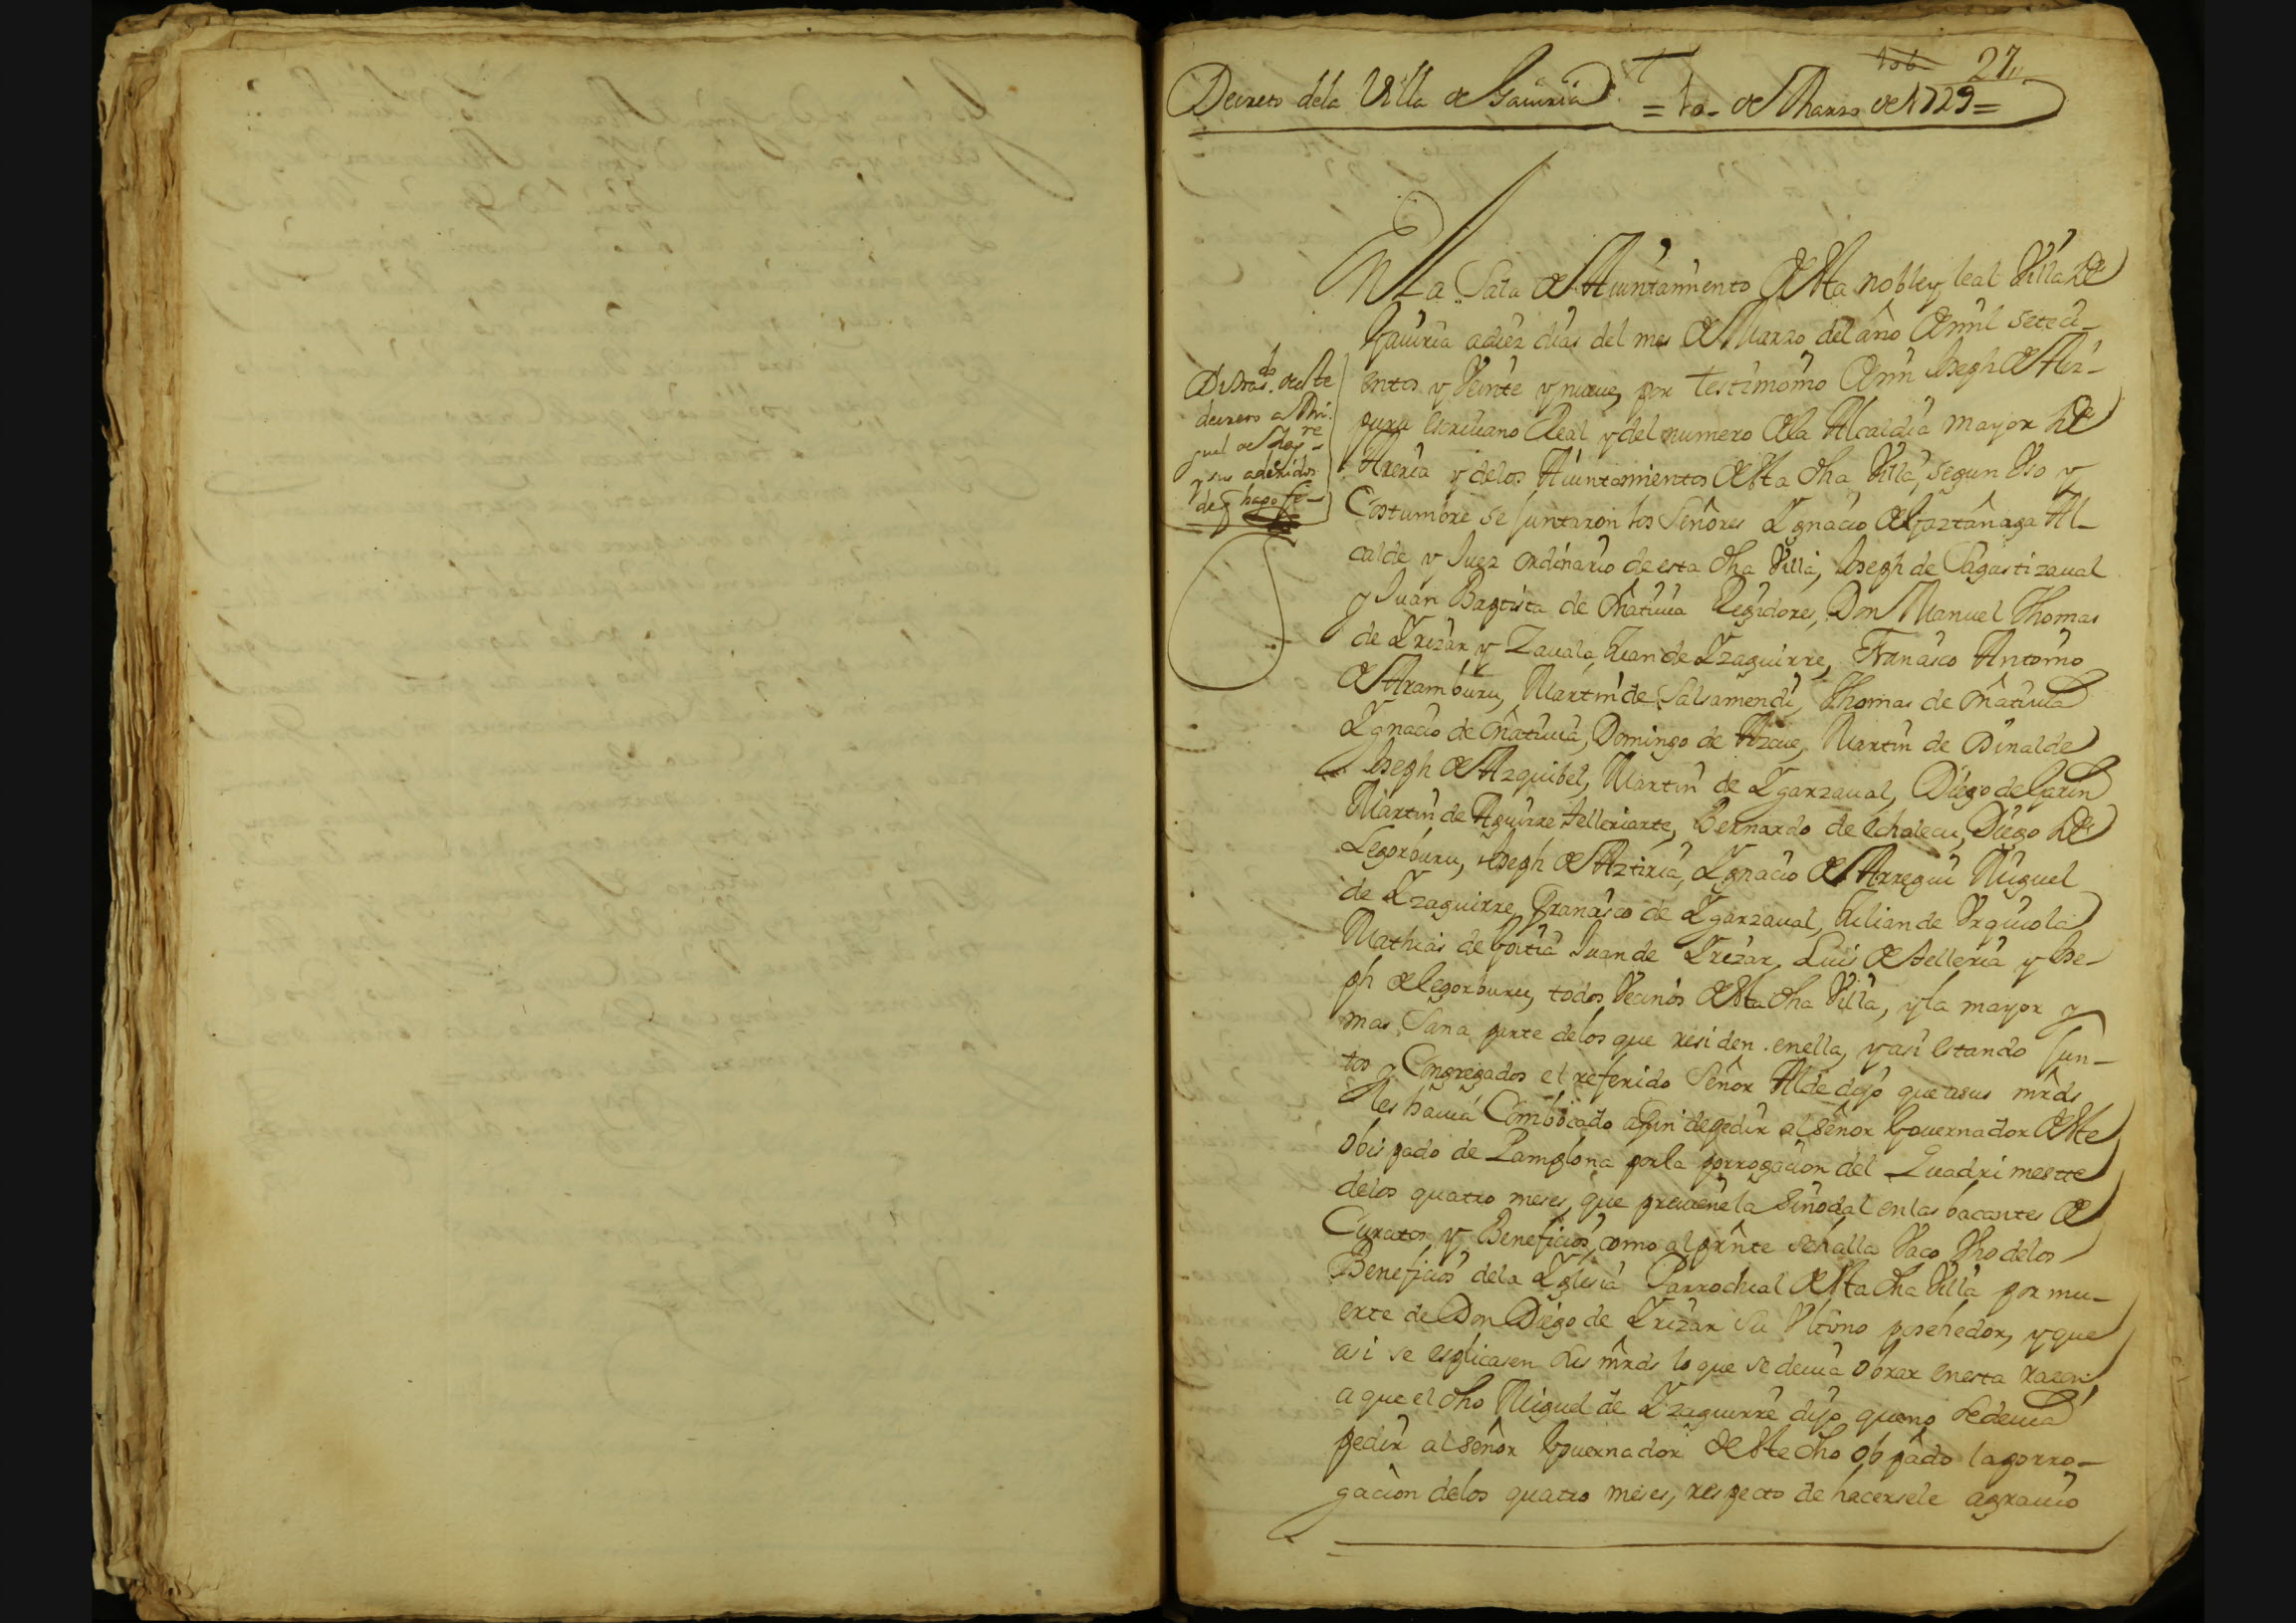 27
Decreto dela Villa de Gaviria = 10 - de Marzo de 1729 =
En La Sala de Aiuntamiento desta noble y leal Villa de
Gaviria adiez dias del mes de Marzo del año demil seteci-
entos y Veinte y nueve, por testimonio demi Joseph de Aiz-
puru escrivano Real y del numero dela Alcaldia mayor de
Areria y delos Aiuntamientos desta dha Villa, segun Uso y
Costumbre se juntaron los Señores Ygnacio de Gaztañaga Al-
calde y Juez ordinario de esta dha Villa, Joseph de Sagastizaval
y Juan Baptista de Oñativia Regidores, Don Manuel Thomas
de Yrizar y Zavala, Juan de Yzaguirre, Francisco Antonio
de Aramburu, Martin de Salsamendi, Thomas de Oñativia
Ygnacio de Oñativia, Domingo de Azcue, Martin de Oinalde
Joseph de Azquibel, Martin de Ygarzaval, Diego de Garin
Martin de Aguirre Telleriarte, Bernardo de Echalecu, Diego de
Legorburu, Joseph de Aztiria, Ygnacio de Arregui Miguel
de Yzaguirre, Francisco de Ygarzaval, Julian de Urquiola
Mathias de Goitia Juan de Yrizar, Luis de Telleria y Jose-
ph de Legorburu, todos Vecinos desta dha Villa, y la mayor y
mas Sana parte delos que residen enella, y asi estando jun-
tos y Congregados el referido Señor Alde dijo que asus mrds
les havia Combocado afin de pedir al señor Governador deste
obispado de Pamplona por la porrogacion del Quadrimestre
delos quatro meses, que previene la Sinodal en las bacantes de
Curatos y Beneficios, como al prnte se halla Vaco Uno delos
Beneficios dela Yglesia Parrochial desta dha Villa por mu-
erte de Don Diego de Yrizar Su Ultimo posehedor, y que
asi se esplicasen sus mrds lo que se devia obrar en esta razon,
a que el dho Miguel de Yzaguirre dijo que no se devia
pedir al señor Governador deste dho obpado la porro-
gacion delos quatro meses, respecto de hacersele agravio
Di tras.do deste
decreto a Mi-
guel de Yzag.re
y sus aderidos
de q hago fe -